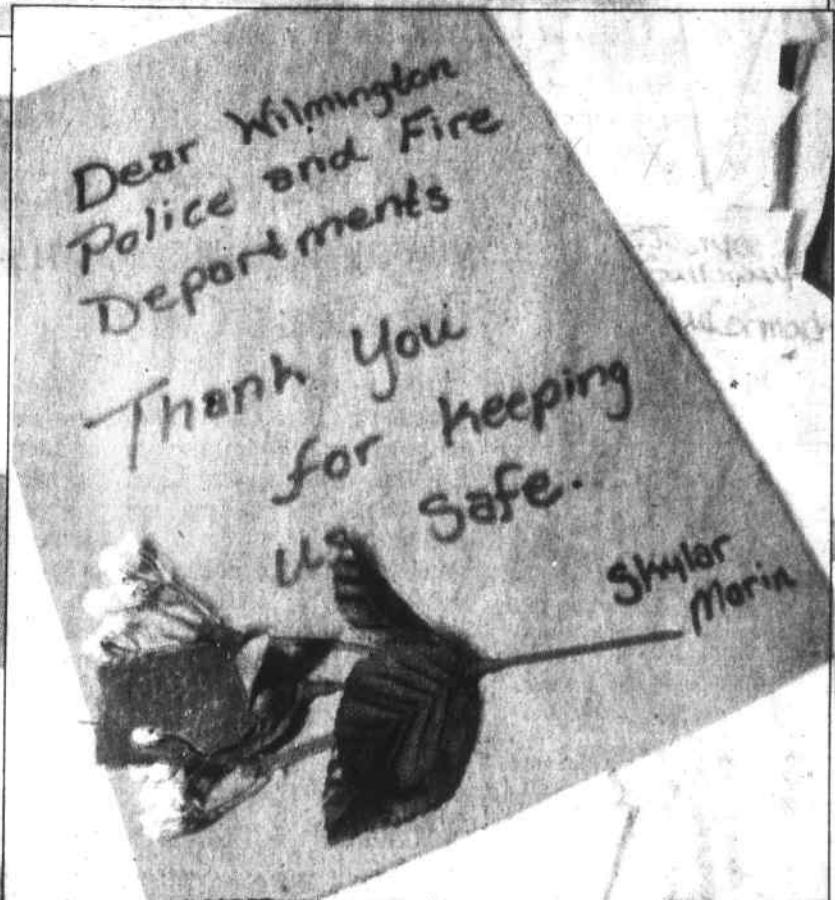 Dear Wilmington
Police and Fire
Departments
Thank You
for keeping
us safe.
Skylar
Morin